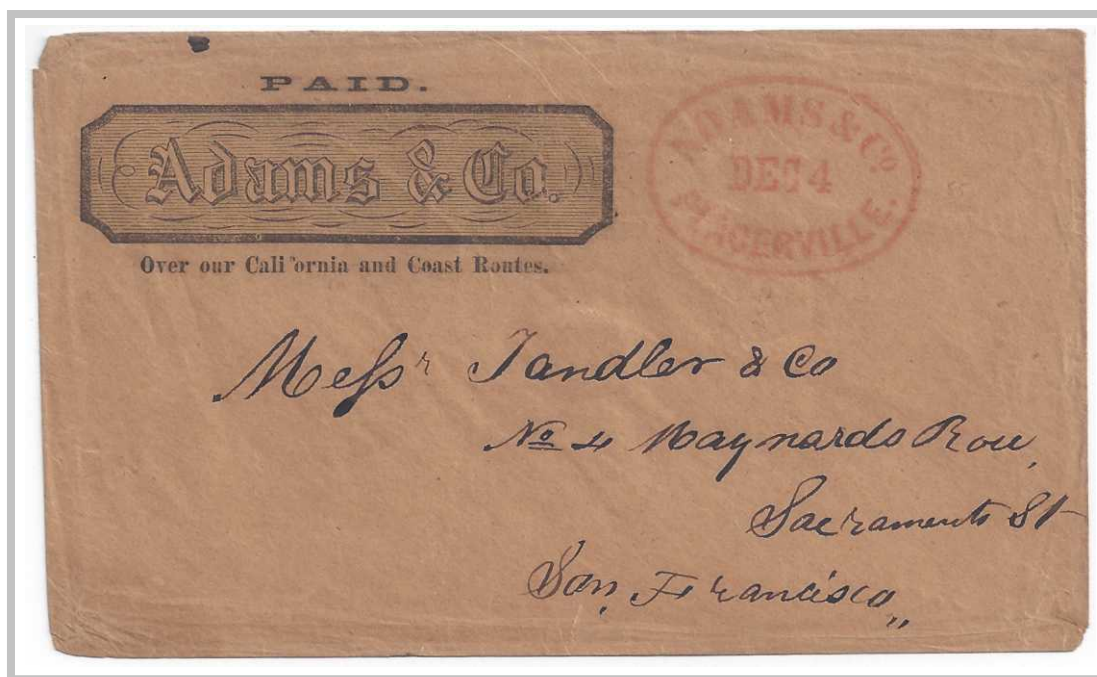 PAID.
Adams & Co.
Over our Cali ornia and Coast Routes.
ADAMS & Co
DEC 4
PLACERVILLE.
Messr Tandler & Co
No 4 Maynards Row,
Sacramento St
San, Francisco,,